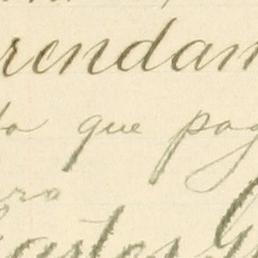 rendam
to que pag
ro
astos